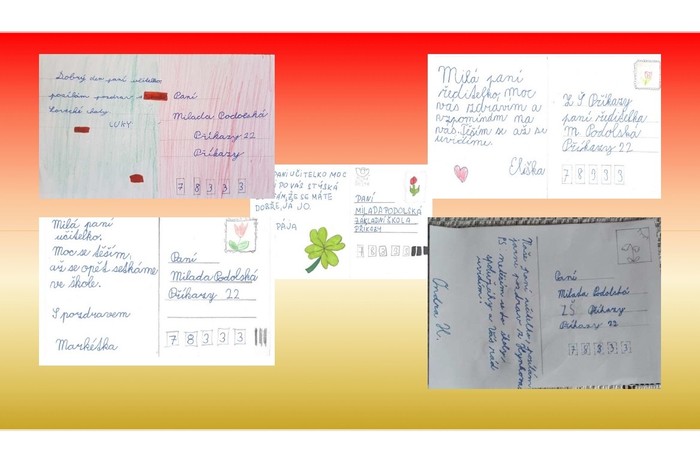 Dobrý den paní učitelko
posílám pozdrav z
Horské
LUKY
Paní
Milada Podolská
Příkazy 22
Příkazy
7 8 3 3 3
Milá paní
ředitelko, moc
vás zdravím a
vzpomínám na
vás. Těším se až se
uvidíme.
Eliška
ZŠ Příkazy
paní ředitelka
M. Podolská
Příkazy 22
7 8 3 3 3
PANÍ UČITELKO MOC
PO VÁS STÝSKÁ
ŽE SE MÁTE
DOBŘE, JÁ JO.
PÁJA
PANÍ
MILADA PODOLSKÁ
ZÁKLADNÍ ŠKOLA
PŘÍKAZY
7 8 3 3 3
Milá paní
učitelko.
Moc se těším
až se opět setkáme
ve škole.
S pozdravem
Markétka
Paní
Milada Podolská
Příkazy 22
7 8 3 3 3
paní učitelko, posílám
pozdrav z
do školy,
spolužáky a Vás rád
uvidím.
Jindra H.
Paní
Milada Podolská
ZŠ Příkazy
Příkazy 22
7 8 3 3 3